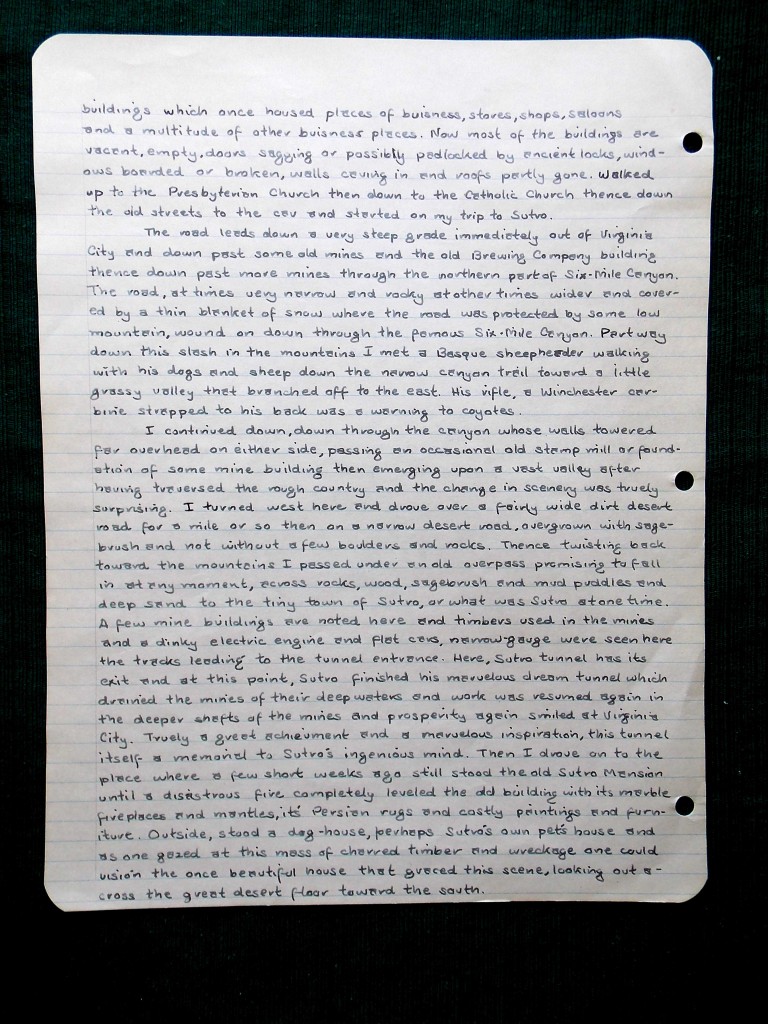 buildings which once housed places of buisness, stores, shops, saloons
and a multitude of other buisness places. Now most of the buildings are
vacant, empty, doors sagging or possibly padlocked by ancient locks, wind-
ows boarded or broken, walls caving in and roofs partly gone. Walked
up to the Presbyterian Church then down to the Catholic Church thence down
the old streets to the car and started on my trip to Sutro.
The road leads down a very steep grade immediately out of Virginia
City and down past some old mines and the old Brewing Company building
thence down past more mines through the northern part of Six-Mile Canyon.
The road, at times very narrow and rocky at other times wider and cover-
ed by a thin blanket of snow where the road was protected by some low
mountain, wound on down through the famous Six-Mile Canyon. Part way
down this slash in the mountains I met a Basque sheepheader walking
with his dogs and sheep down the narrow canyon trail toward a little
grassy valley that branched off to the east. His rifle, a Winchester car-
bine strapped to his back was a warning to coyotes.
I continued down, down through the canyon whose walls towered
far overhead on either side, passing an occasional old stamp mill or found-
ation of some mine building then emerging upon a vast valley after
having traversed the rough country and the change in scenery was truely
surprising. I turned west here and drove over a fairly wide dirt desert
road for a mile or so then on a narrow desert road, overgrown with sage-
brush and not without a few boulders and rocks. Thence twisting back
toward the mountains I passed under an old overpass promising to fall
in at any moment, across rocks, wood, sagebrush and mud puddles and
deep sand to the tiny town of Sutro, or what was Sutro at one time.
A few mine buildings are noted here and timbers used in the mines
and a dinky electric engine and flat cars, narrow-gauge were seen here
the tracks leading to the tunnel entrance. Here, Sutro tunnel has its
exit and at this point, Sutro finished his marvelous dream tunnel which
drained the mines of their deep waters and work was resumed again in
the deeper shafts of the mines and prosperity again smiled at Virginia
City. Truely a great achievment and a marvelous inspiration, this tunnel
itself a memorial to Sutro's ingenious mind. Then I drove on to the
place where a few short weeks ago still stood the old Sutro Mansion
until a disastrous fire completely leveled the old building with its marble
fireplaces and mantles, it's Persian rugs and costly paintings and furn-
iture. Outside, stood a dog-house, perhaps Sutro's own pet's house and
as one gazed at this mass of charred timber and wreckage one could
vision the once beautiful house that graced this scene, looking out a-
cross the great desert floor toward the south.